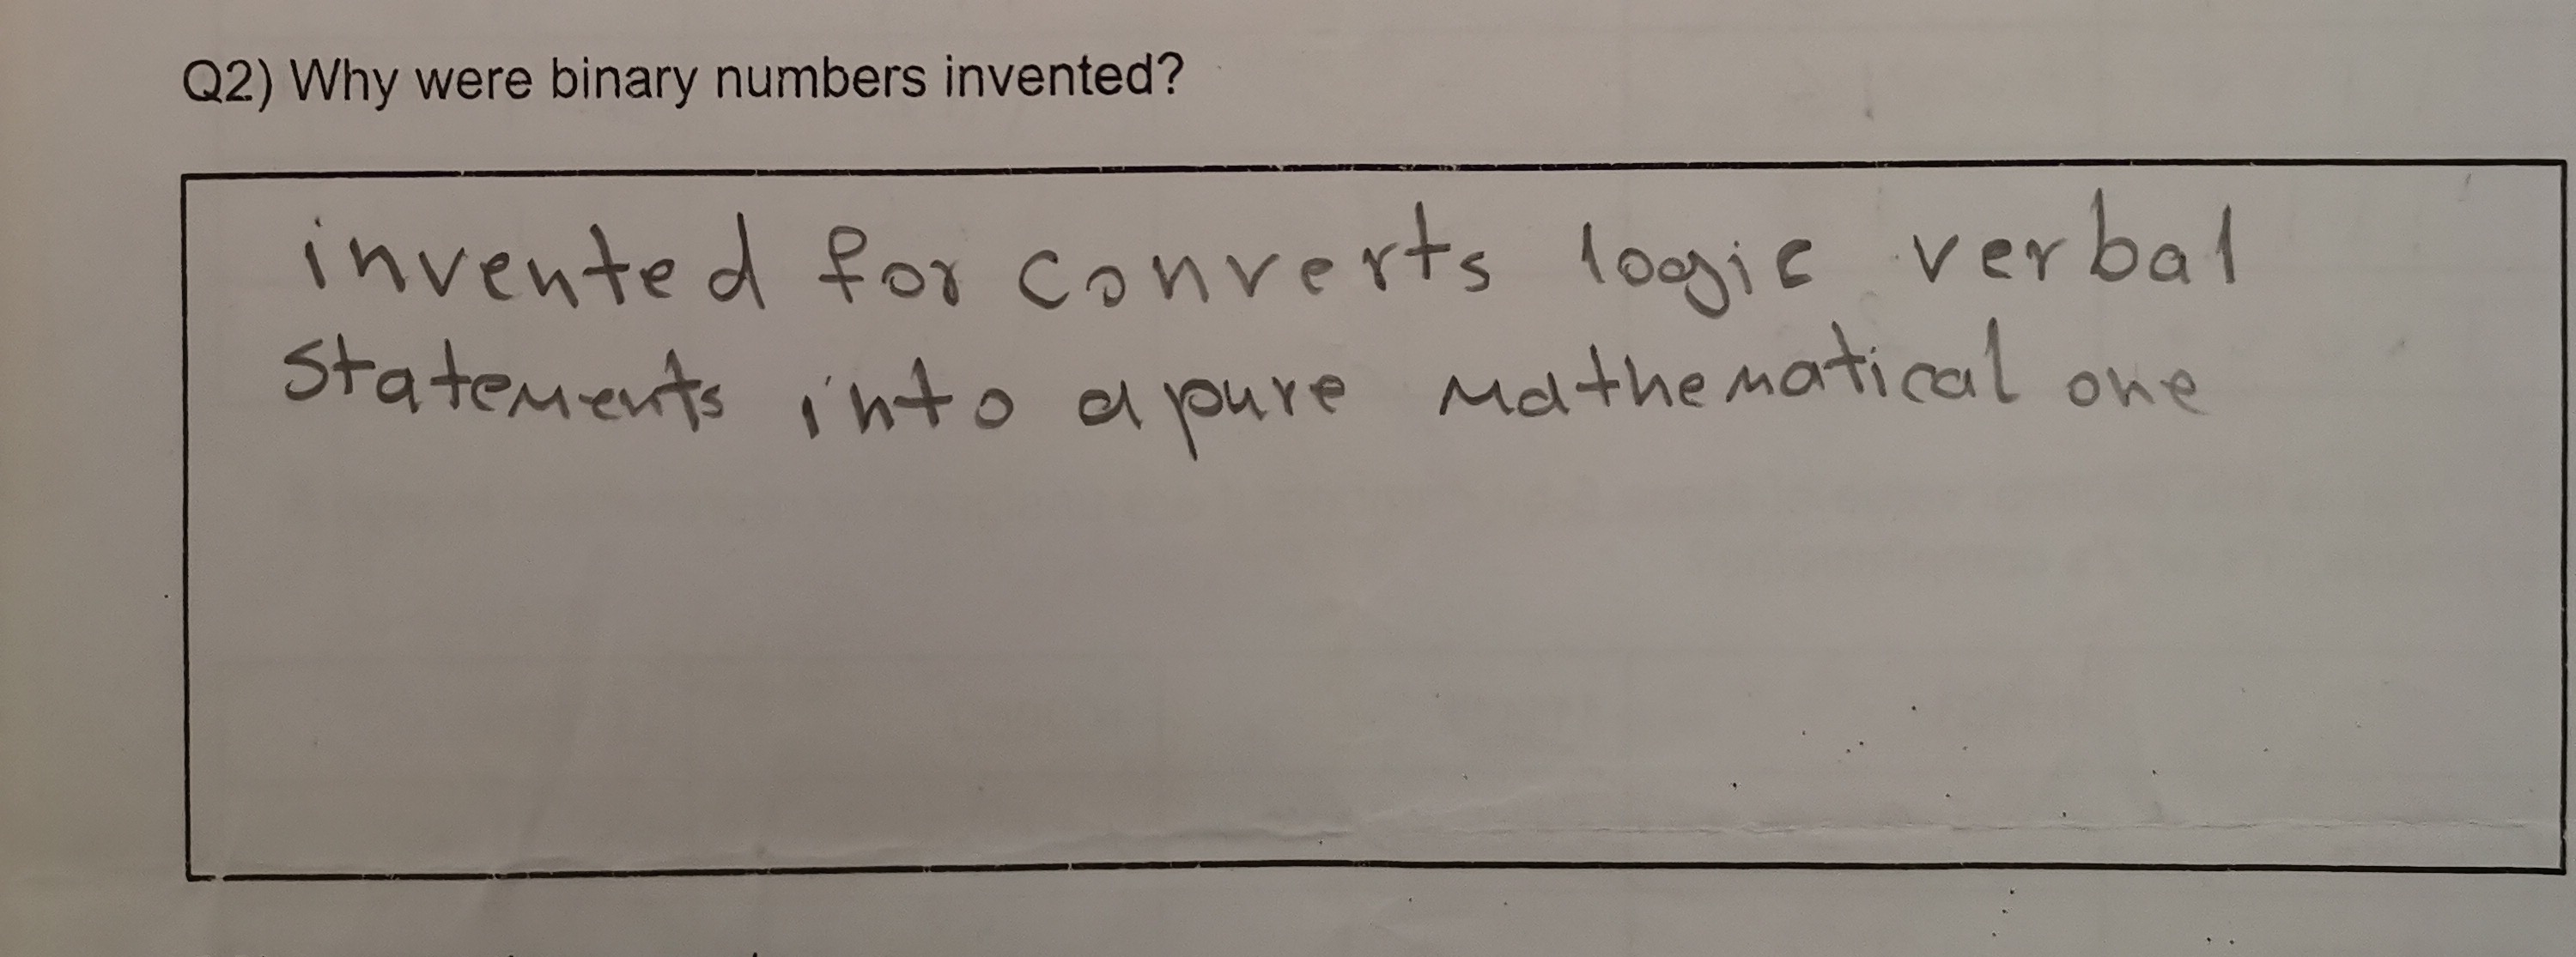 Q2) Why were binary numbers invented?
invented for converts logic verbal
Statements into a pure mathematical one